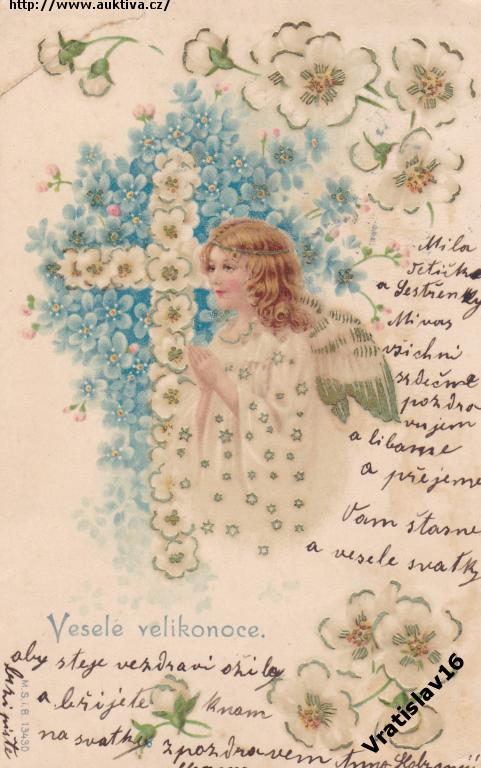 http://www.auktiva.cz/
Mila
tetičko
a Sestřenky
Mivas
všichni
srdečně
pozdra
vujem
a libame
a přejeme
Vam štasne
a vesele svatky
Veselé velikonoce.
aby steje vezdravi ožily
a bižijete knam
na svatky zpozdravem
M.S.i.B. 13430
Vratislav16